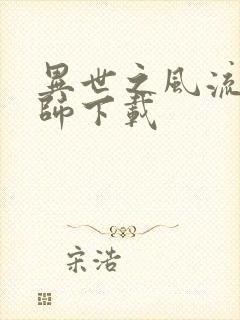 異世之風流
師下載
宋浩